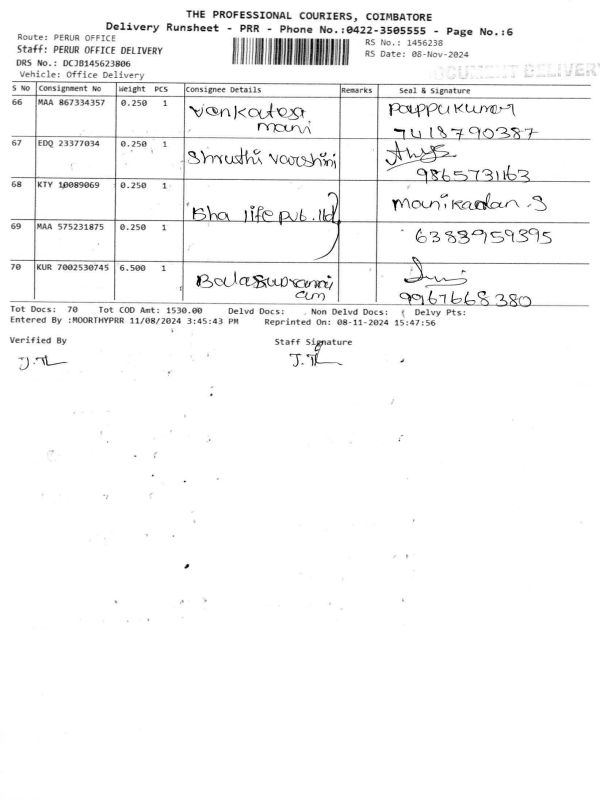 THE PROFESSIONAL COURIERS, COIMBATORE
Delivery Runsheet - PRR - Phone No.:0422-3505555 - Page No.:6
Route: PERUR OFFICE
RS No.: 1456238
Staff: PERUR OFFICE DELIVERY
RS Date: 08-Nov-2024
DRS No.: DCJB145623806
DOCUMENT DELIVERY
Vehicle: Office Delivery
S No Consignment No Weight PCS Consignee Details Remarks Seal & Signature
66 MAA 867334357 0.250 1 Venkatesa Pappukumar
mani 7418790387
67 EDQ 23377034 0.250 1 Shruthi varshini
9865731163
68 KTY 10089069 0.250 1 Bha life pub. ltd Manikandan .S
69 MAA 575231875 0.250 1 6383959395
70 KUR 7002530745 6.500 1 Balasupramani
am 9967668380
Tot Docs: 70 Tot COD Amt: 1530.00 Delvd Docs: Non Delvd Docs: Delvy Pts:
Entered By :MOORTHYPRR 11/08/2024 3:45:43 PM Reprinted On: 08-11-2024 15:47:56
Verified By Staff Signature